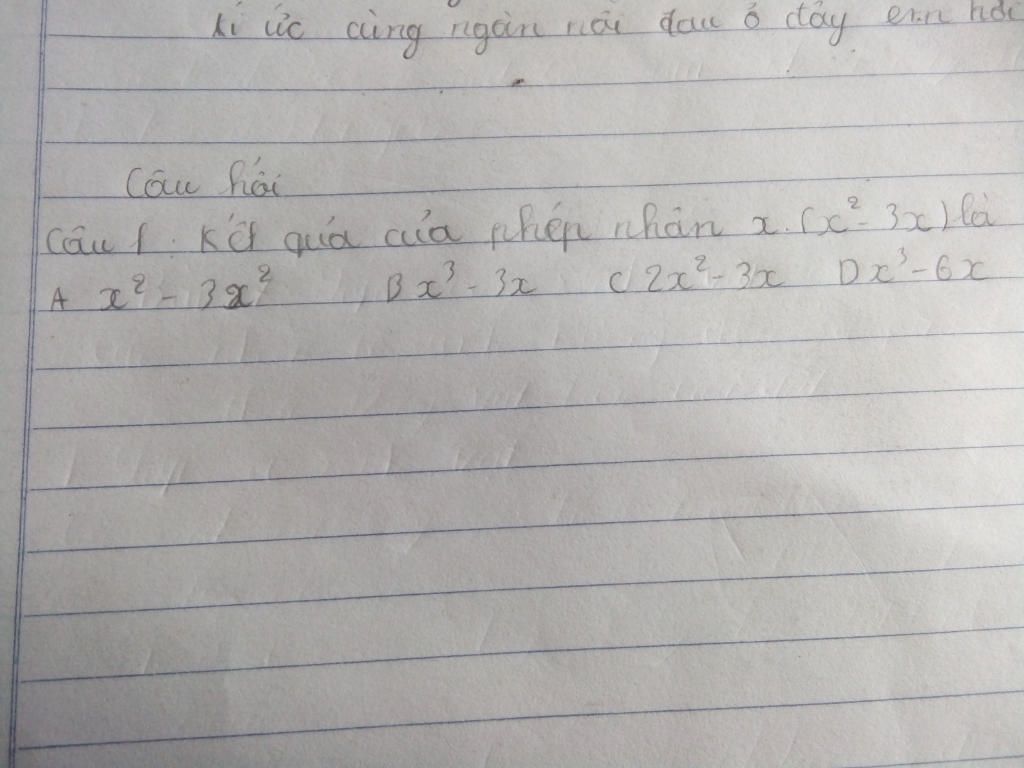 kí ức cùng ngàn nỗi đau ở đây em hỡi
Câu hỏi
Câu 1: Kết quả của phép nhân x.(x² - 3x) là
A x² - 3x² B x³ - 3x C 2x² - 3x D x³ - 6x